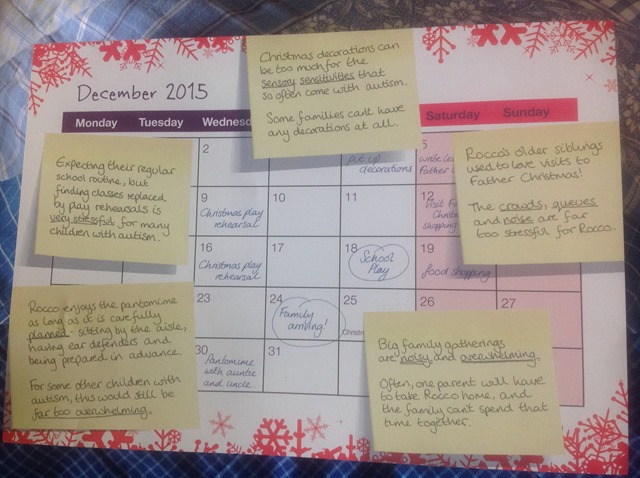 Christmas decorations can
be too much for the
sensory sensitivities that
so often come with autism.
Some families can't have
any decorations at all.
December 2015
Monday Tuesday Saturday Sunday
Expecting their regular
school routine, but
finding classes replaced
by play rehearsals is
very stressful for many
children with autism.
Rocco's older siblings
used to love visits to
Father Christmas!
The crowds, queues
and noise are far
too stressful for Rocco.
2
decorations
5
9
Christmas play
rehearsal
10
11
12
shopping
16
Christmas play
rehearsal
17
18
School
Play
19
food shopping
23
24
Family
arriving!
25
26
27
30
Pantomime
with auntie
and uncle.
31
Rocco enjoys the pantomime
as long as it is carefully
planned - sitting by the aisle,
having ear defenders and
being prepared in advance.
For some other children with
autism, this would still be
far too overwhelming.
Big family gatherings
are noisy and overwhelming.
Often, one parent will have
to take Rocco home, and
the family can't spend that
time together.